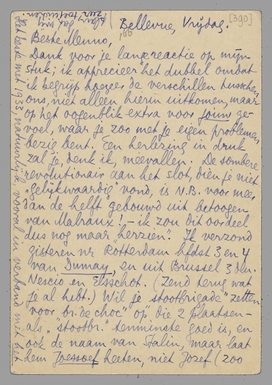 Bellevue, Vrijdag.
Beste Menno,
Dank voor je lange reactie op mijn
stuk; ik apprecieer het dubbel omdat
ik begrijp hoezeer de verschillen tusschen
ons, niet alleen hierin uitkomen, maar
op het oogenblik extra voor jouw ge-
voel, waar je zoo met je eigen problemen
bezig bent. Een herlezing in druk
zal je, denk ik, meevallen. De sombere
revolutionair aan het slot, dien je niet
"gelijkwaardig" vond, is N.B. voor meer
dan de helft gebouwd uit betoogen
van Malraux! – ik zou dit oordeel
dus nog maar "herzien". Ik verzond
gisteren nr Rotterdam hfdst 3 en 4
van Ducroo, en uit Brussel 3 bln.
Nescio en Elsschot. (Zend terug wat
je al hebt.) Wil je "stootbrigade" zetten
voor "br. de choc" op die 2 plaatsen –
als "stootbr." tenminste goed is, en
ook de naam van Stalin, maar laat
dem Joessoef heeten, niet Jozef (zoo